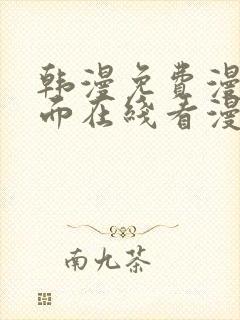 韩漫免费漫
而在线看漫
南九茶